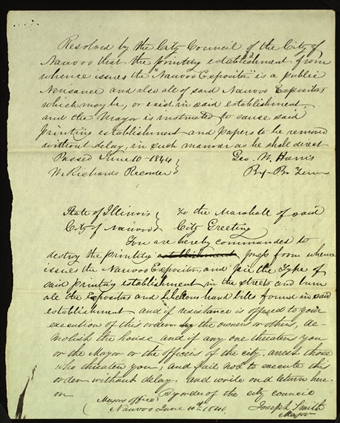 Resolved by the City Council of the City of
Nauvoo that the printing establishment from
whence issues the "Nauvoo Expositor" is a public
Nuisance and also all of said Nauvoo Expositors
which may be, or exist in said establishment
and the Mayor is instructed to cause said
Printing establishment and papers to be removed
without delay, in such manner as he shall direct
Passed June 10 - 1844 Geo. W. Harris
W. Richards Recorder Pro. Tem
State of Illinois } To the Marshall of said
City of Nauvoo } City Greeting
You are hereby commanded to
destroy the printing establishment press from whence
issues the Nauvoo Expositor, and pi the Type of
said printing establishment in the streets and burn
all the Expositors and libellous hand bills found in said
establishment and if resistance is offered to your
execution of this order by the owners or others, de-
molish the house and if any one threatens you
or the Mayor or the officers of the city, arrest those
who threaten you, and fail not to execute this
order without delay. and make due return here
on. By order of the city council
Mayors office } Joseph Smith
Nauvoo June 10th 1844 } Mayor